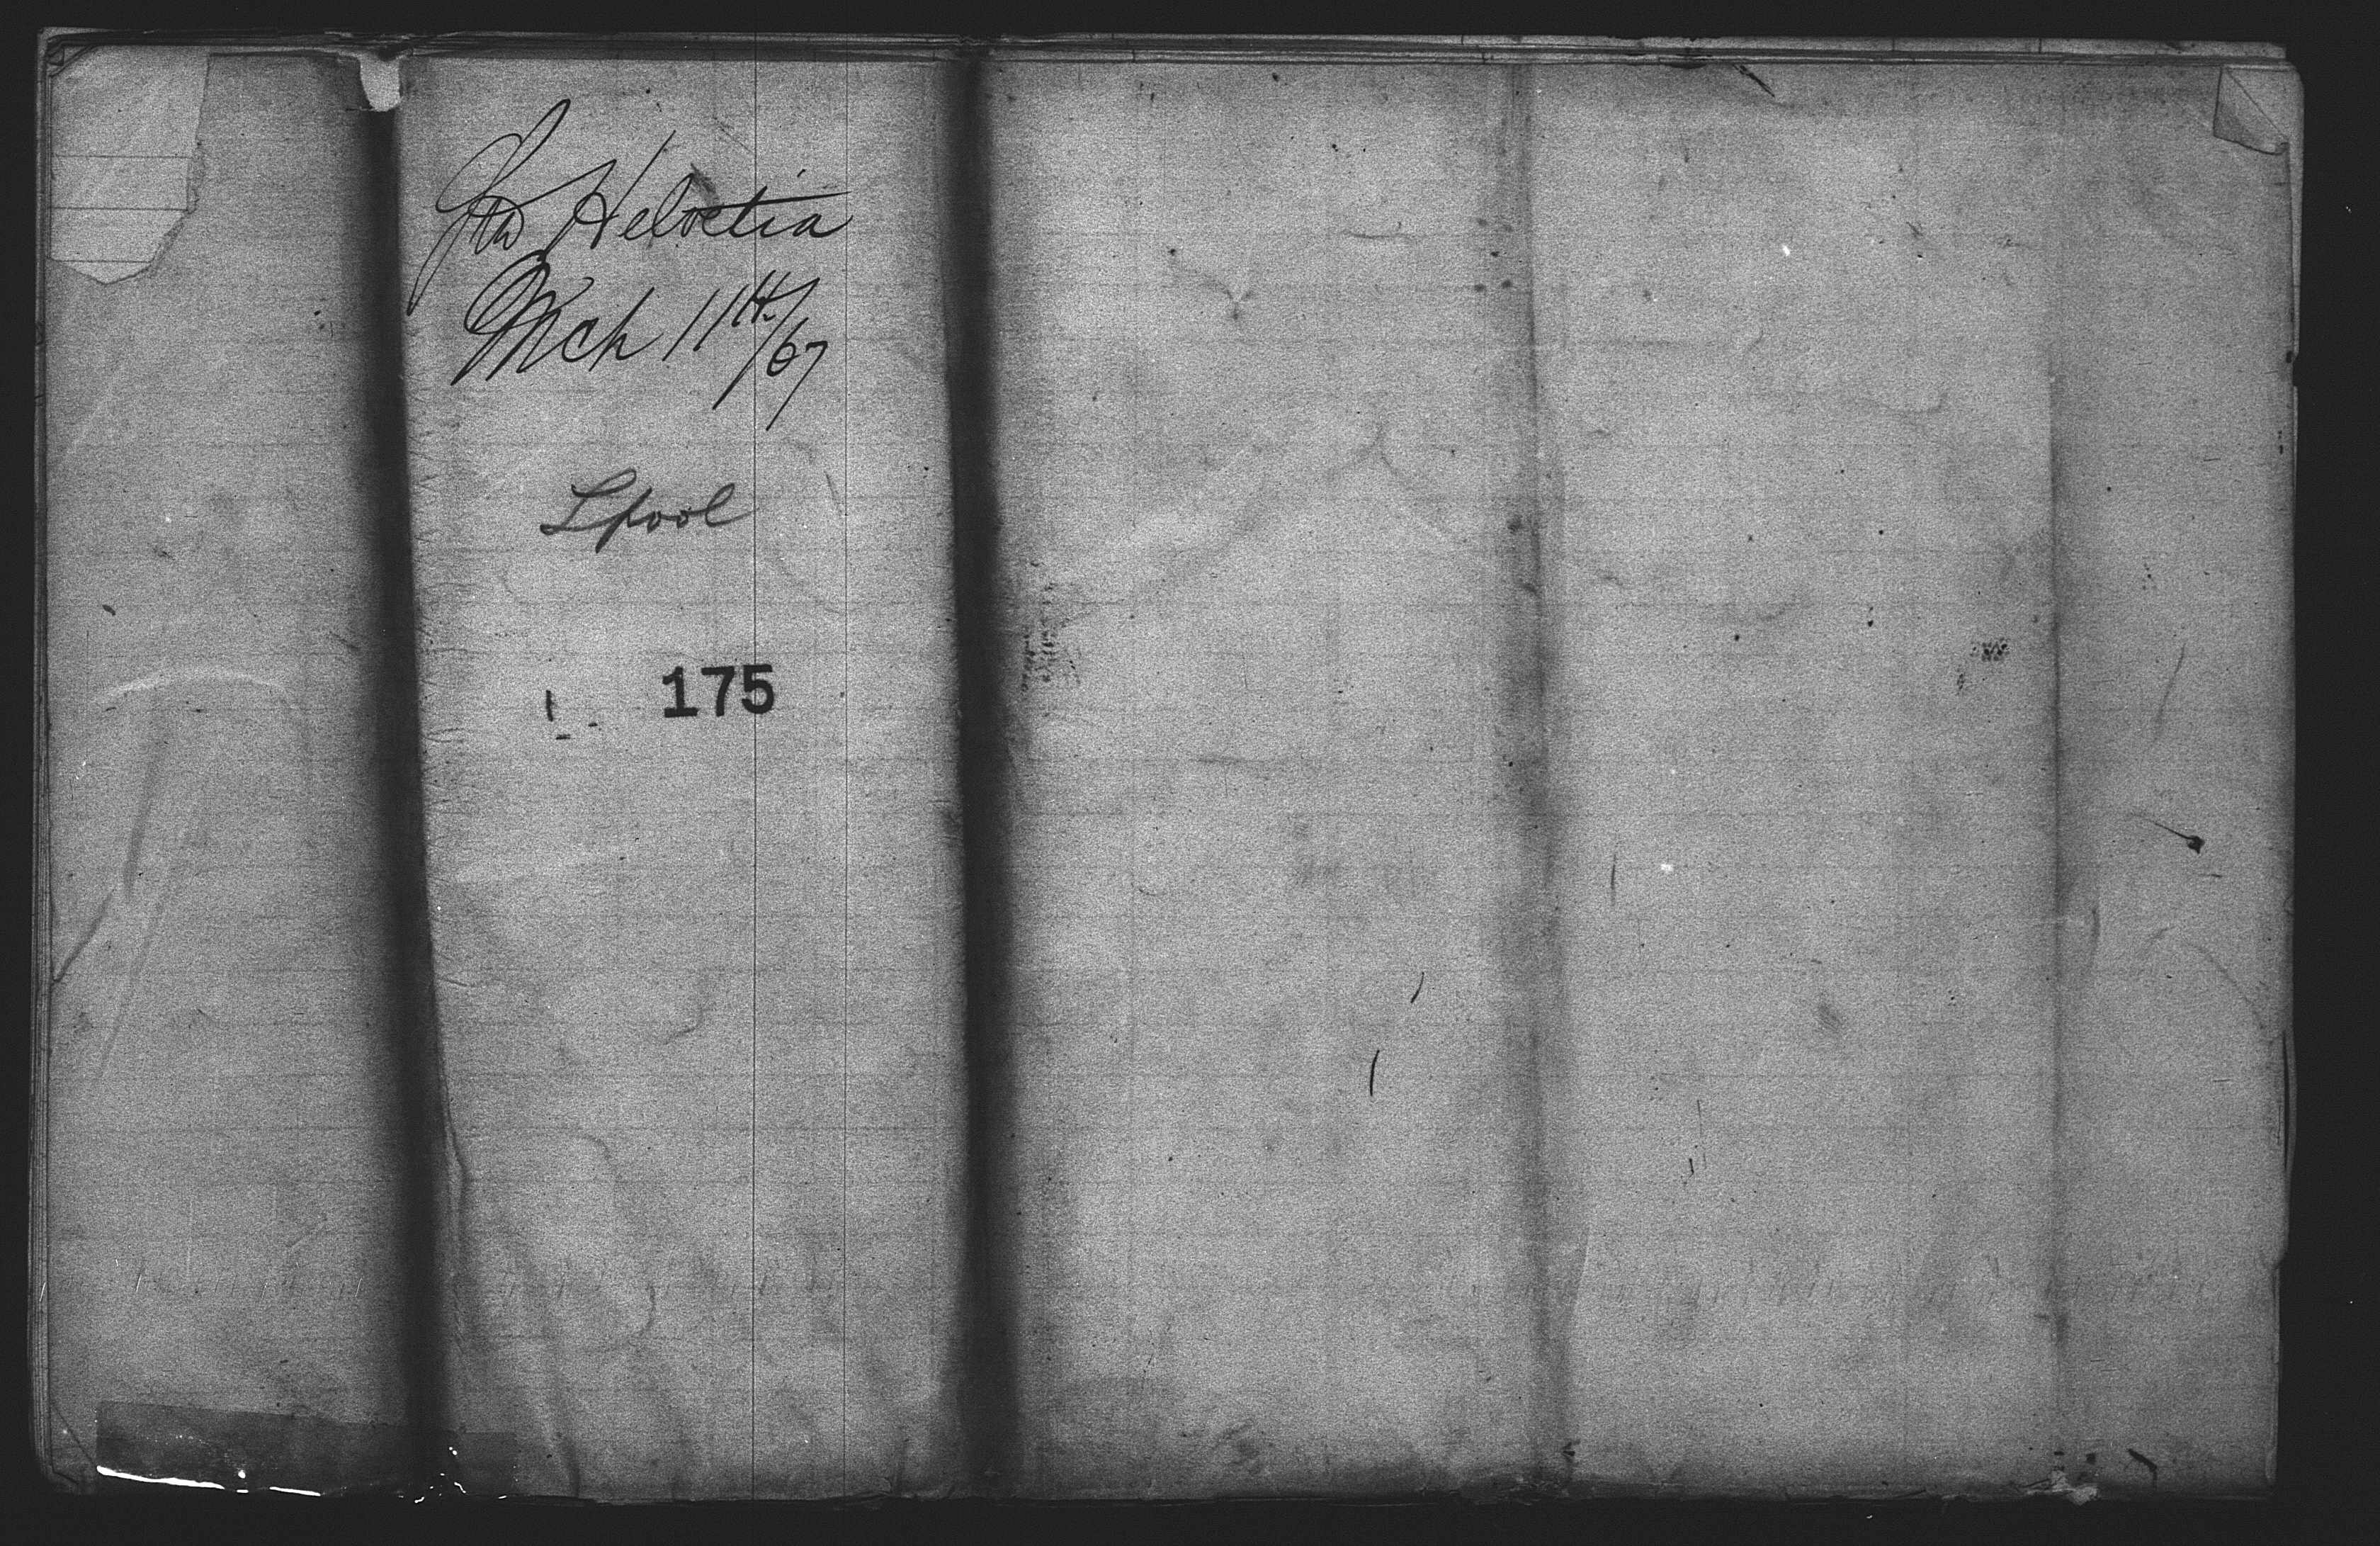 Str Helvetia
Mch 11th/67
Lpool
175